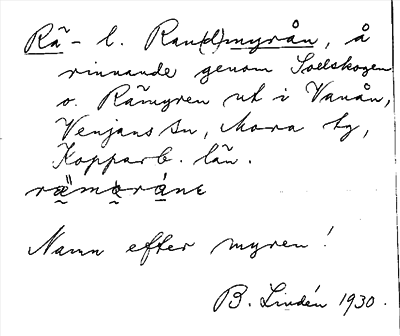 Rå- l. Ran(d)myrån, å
rinnande genom Solskogen
o. Råmyren ut i Vanån,
Venjans sn, Mora tg,
Kopparb. län.
Namn efter myren!
B. Lindén 1930.